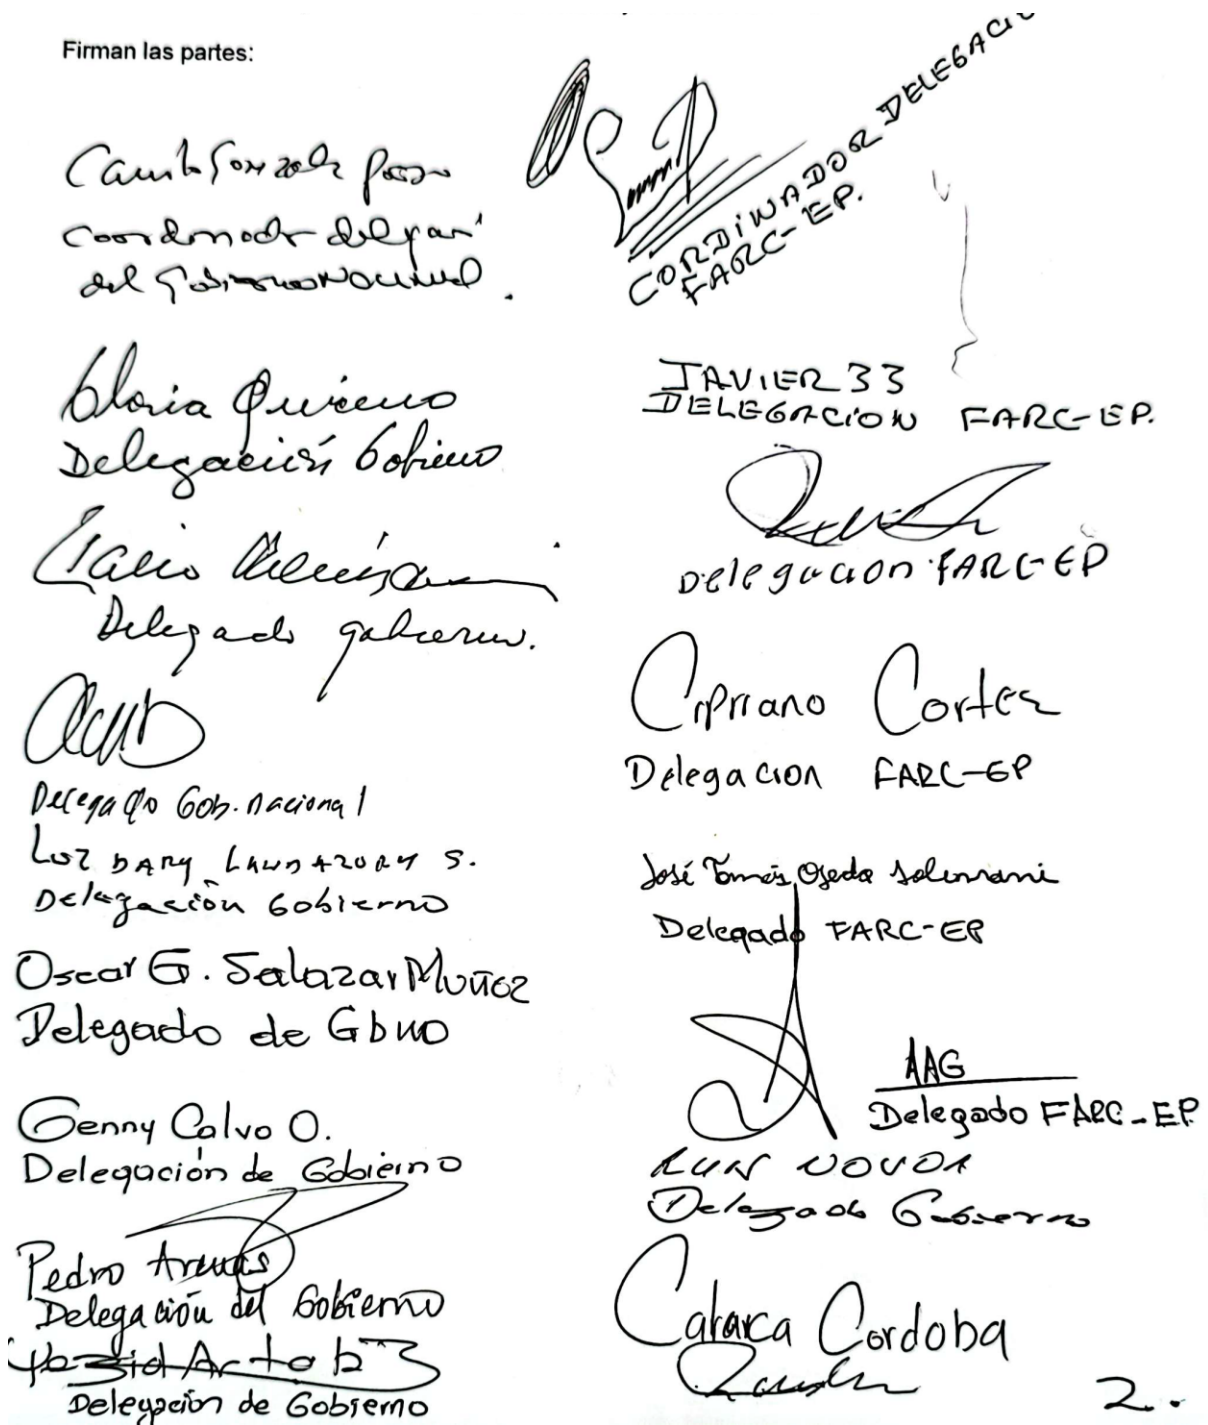 Firman las partes:
Camilo Gonzalez Posso
Coordinador
del Gobierno Nacional.
Gloria Quiceno
Delegación Gobierno
Delegado gobierno.
Delegado Gob. nacional
Luz DARY LANDAZURY S.
Delegación Gobierno
Oscar G. Salazar Muñoz
Delegado de Gbno
Genny Calvo O.
Delegación de Gobierno
Pedro Arenas
Delegación del Gobierno
Delegación de Gobierno
CORDINADOR DELEGACIO
FARC-EP.
JAVIER 33
DELEGACION FARC-EP.
Delegacion FARC-EP
Cipriano Cortez
Delegacion FARC-EP
José Tomás Ojeda
Delegado FARC-EP
AAG
Delegado FARC-EP
Delegado Gobierno
Calarca Cordoba
2.